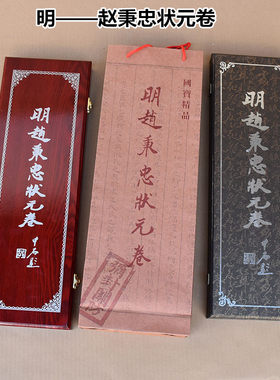 明——赵秉忠状元卷
明趙秉忠狀元卷
國寶精品
明趙秉忠狀元卷
明趙秉忠狀元卷